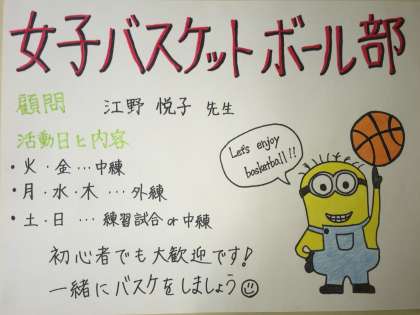 女子バスケットボール部
顧問 江野 悦子 先生
活動日と内容
・火・金…中練
・月・水・木…外練
・土・日…練習試合or中練
Let's enjoy
basketball!!
初心者でも大歓迎です!
一緒にバスケをしましょう